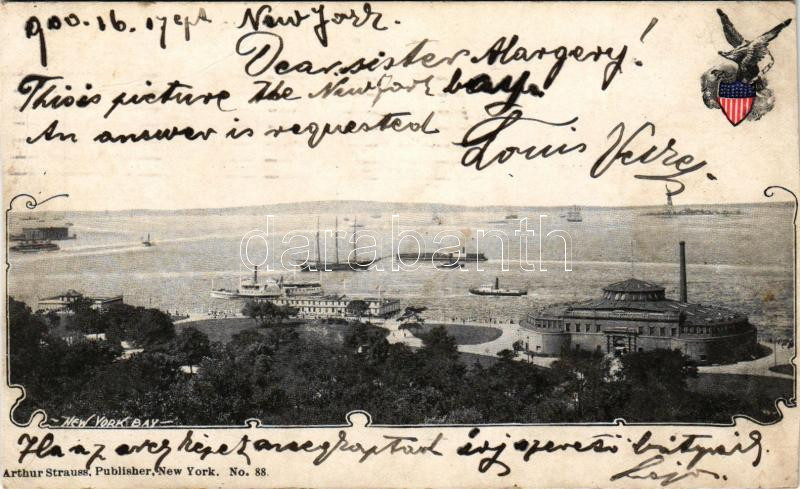 900. 16. 17 sept. New York.
Dear sister Margery!
This is picture the New York bay.
An answer is requested
Louis Vesze.
darabanth
NEW YORK BAY
Ha az arcképet megkaptad írj szerető bátynak.
Lajos.
Arthur Strauss, Publisher, New York. No. 88.